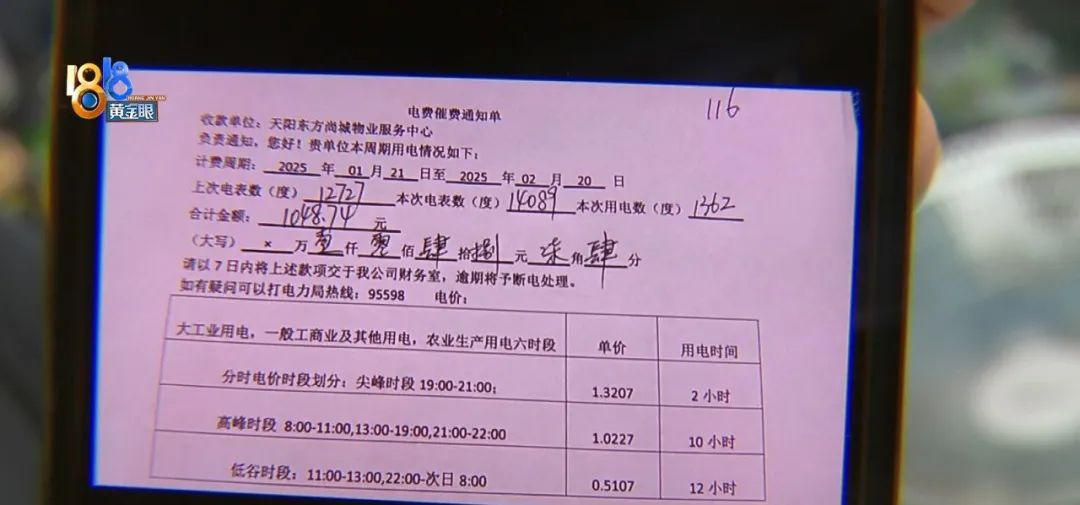 1818
HUANG JIN YAN
黄金眼
116
电费催费通知单
收款单位：天阳东方尚城物业服务中心
负责通知，您好！贵单位本周期用电情况如下：
计费周期： 2025 年 01 月 21 日至 2025 年 02 月 20 日
上次电表数（度） 12727 本次电表数（度） 14089 本次用电数（度） 1362
合计金额： 1048.74 元
（大写） × 万 壹 仟 零 佰 肆 拾 捌 元 柒 角 肆 分
请以 7 日内将上述款项交于我公司财务室，逾期将予断电处理。
如有疑问可以打电力局热线：95598 电价：
大工业用电，一般工商业及其他用电，农业生产用电六时段 单价 用电时间
分时电价时段划分：尖峰时段 19:00-21:00; 1.3207 2 小时
高峰时段 8:00-11:00,13:00-19:00,21:00-22:00 1.0227 10 小时
低谷时段：11:00-13:00,22:00-次日 8:00 0.5107 12 小时